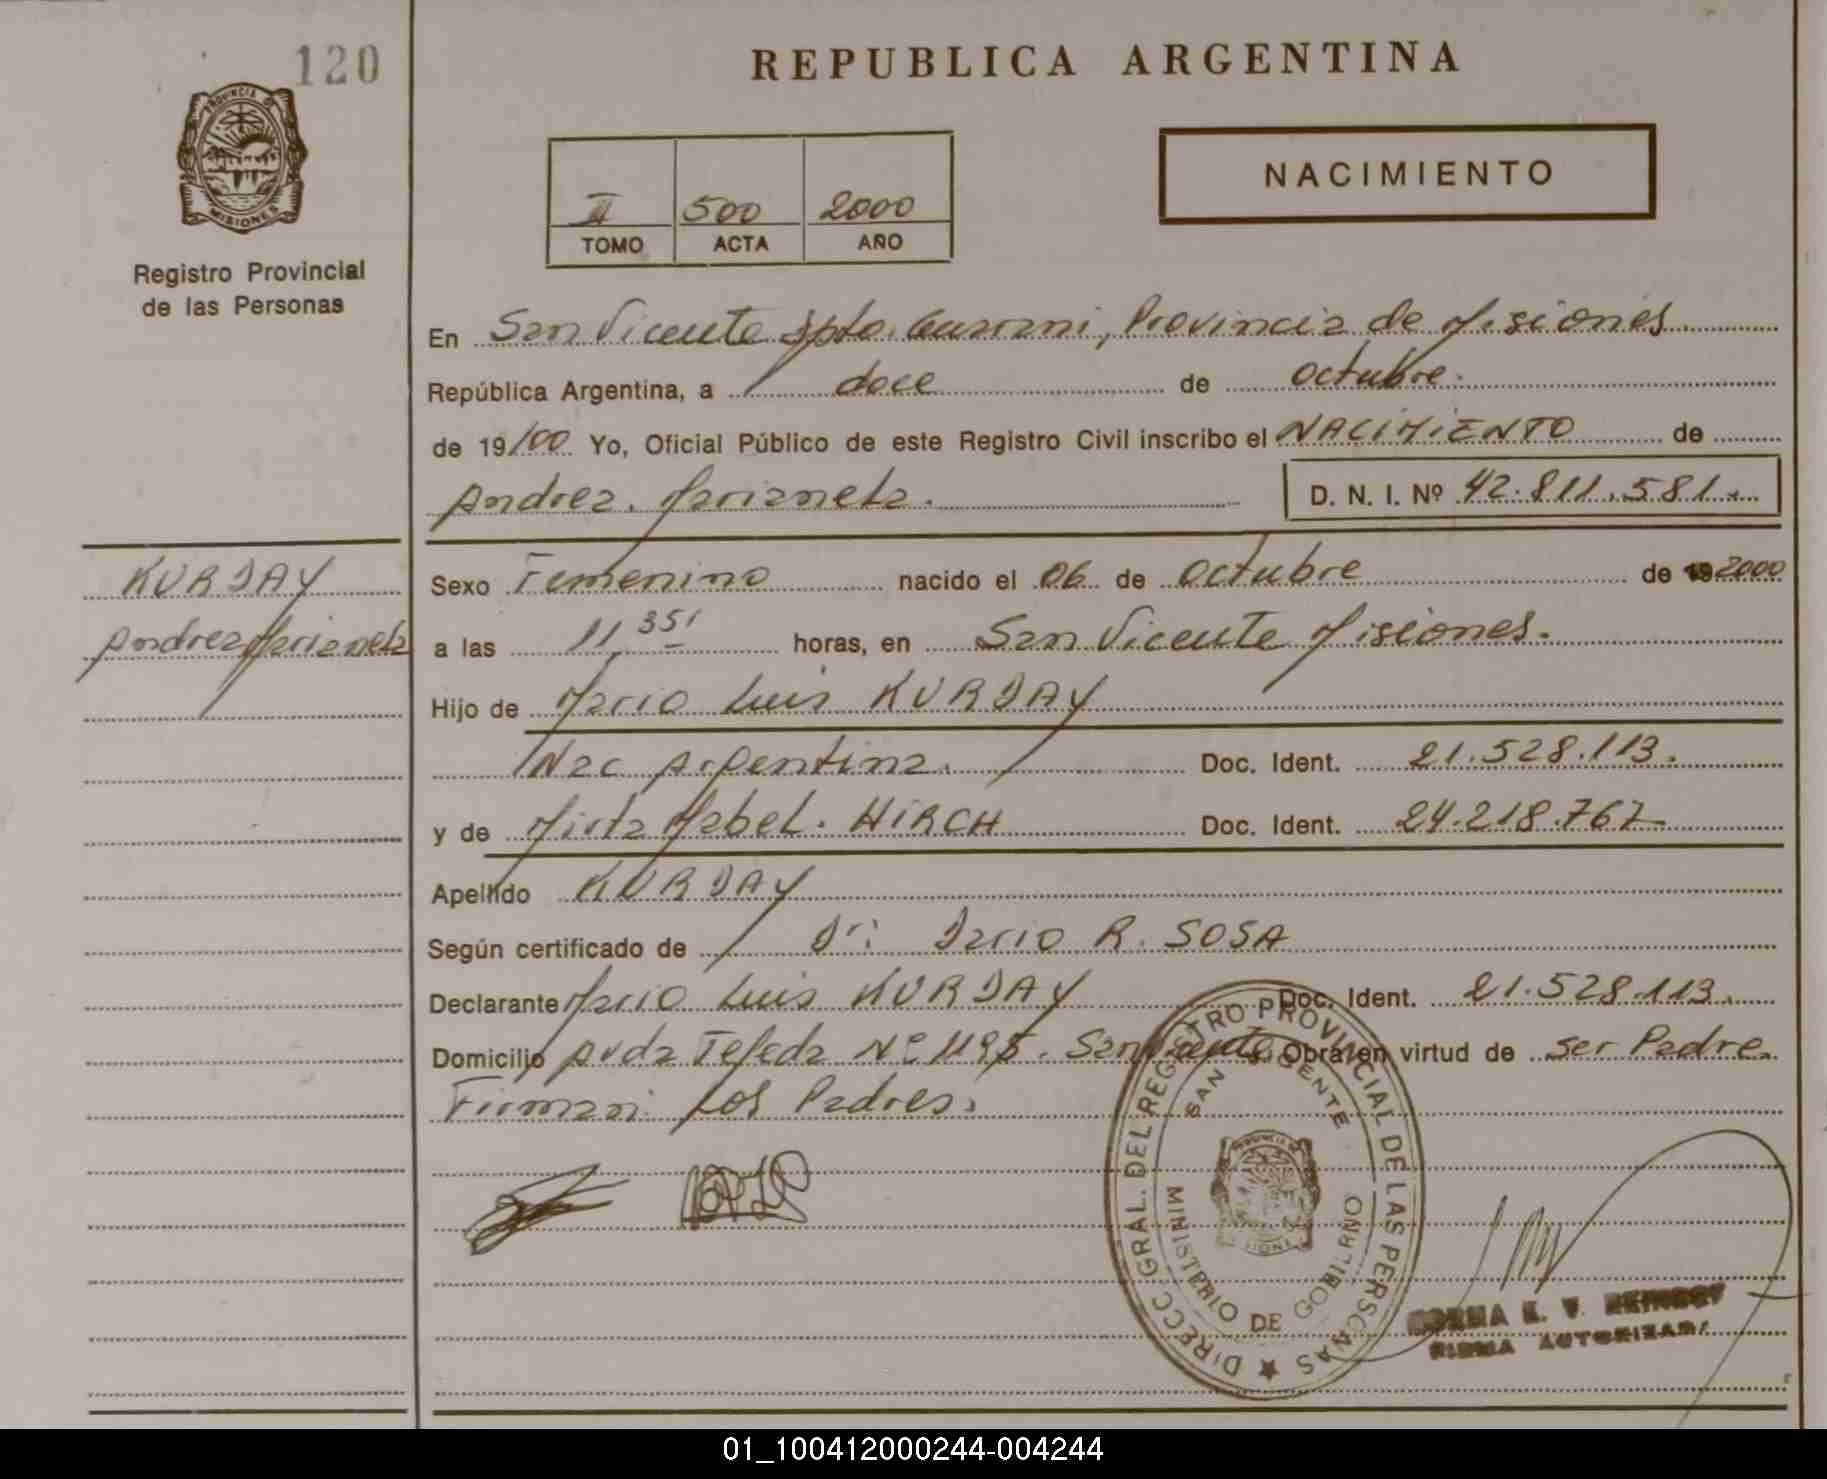 120
REPUBLICA ARGENTINA
PROVINCIA DE
MISIONES
Registro Provincial
de las Personas
NACIMIENTO
II 500 2000
TOMO ACTA AÑO
En San Vicente Dpto. Guarani, Provincia de Misiones
República Argentina, a doce de octubre.
de 19/00 Yo, Oficial Público de este Registro Civil inscribo el NACIMIENTO de
Andrea. Marianela. D. N. I. Nº 42.811.581.
KURDAY
Andrea Marianela
Sexo Femenino nacido el 06 de octubre de 19 2000
a las 11,35' horas, en San Vicente Misiones.
Hijo de Mario Luis KURDAY
Nac Argentina. Doc. Ident. 21.528.113.
y de Mirta Mabel. HIRCH Doc. Ident. 24.218.767
Apellido KURDAY
Según certificado de Dr: Dario R. SOSA
Declarante Mario Luis KURDAY Doc. Ident. 21.528.113.
Domicilio Avda Tejeda Nº 1195. San Vicente. Obra en virtud de ser Padre.
Firman los Padres.
DIRECC. GRAL. DEL REGISTRO PROVINCIAL DE LAS PERSONAS
SAN VICENTE
MINISTERIO DE GOBIERNO
NORMA E. V.
FIRMA AUTORIZADA
01_100412000244-004244